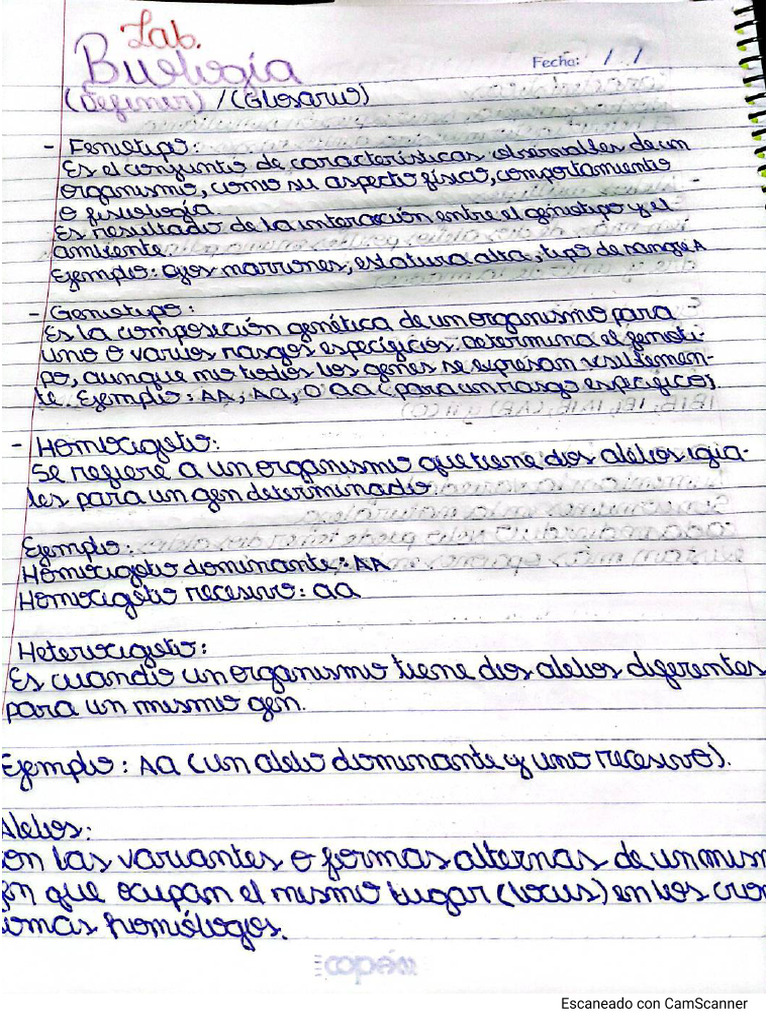 Lab.
Biología
Fecha: / /
(Definir) / (Glosario)
- Fenotipo:
Es el conjunto de características observables de un
organismo, como su aspecto físico, comportamiento
o fisiología.
Es resultado de la interacción entre el genotipo y el
ambiente.
Ejemplo: ojos marrones, estatura alta, tipo de sangre A
- Genotipo:
Es la composición genética de un organismo para
uno o varios rasgos específicos; determina el fenoti-
po, aunque no todos los genes se expresan visiblemen-
te. Ejemplo: AA, Aa, o aa (para un rasgo específico).
- Homocigoto:
Se refiere a un organismo que tiene dos alelos igua-
les para un gen determinado.
Ejemplo:
Homocigoto dominante: AA
Homocigoto recesivo: aa
Heterocigoto:
Es cuando un organismo tiene dos alelos diferentes
para un mismo gen.
Ejemplo: Aa (un alelo dominante y uno recesivo).
Alelos:
on las variantes o formas alternas de un mism
en que ocupan el mismo lugar (locus) en los crom
omas homólogos.
copán
Escaneado con CamScanner